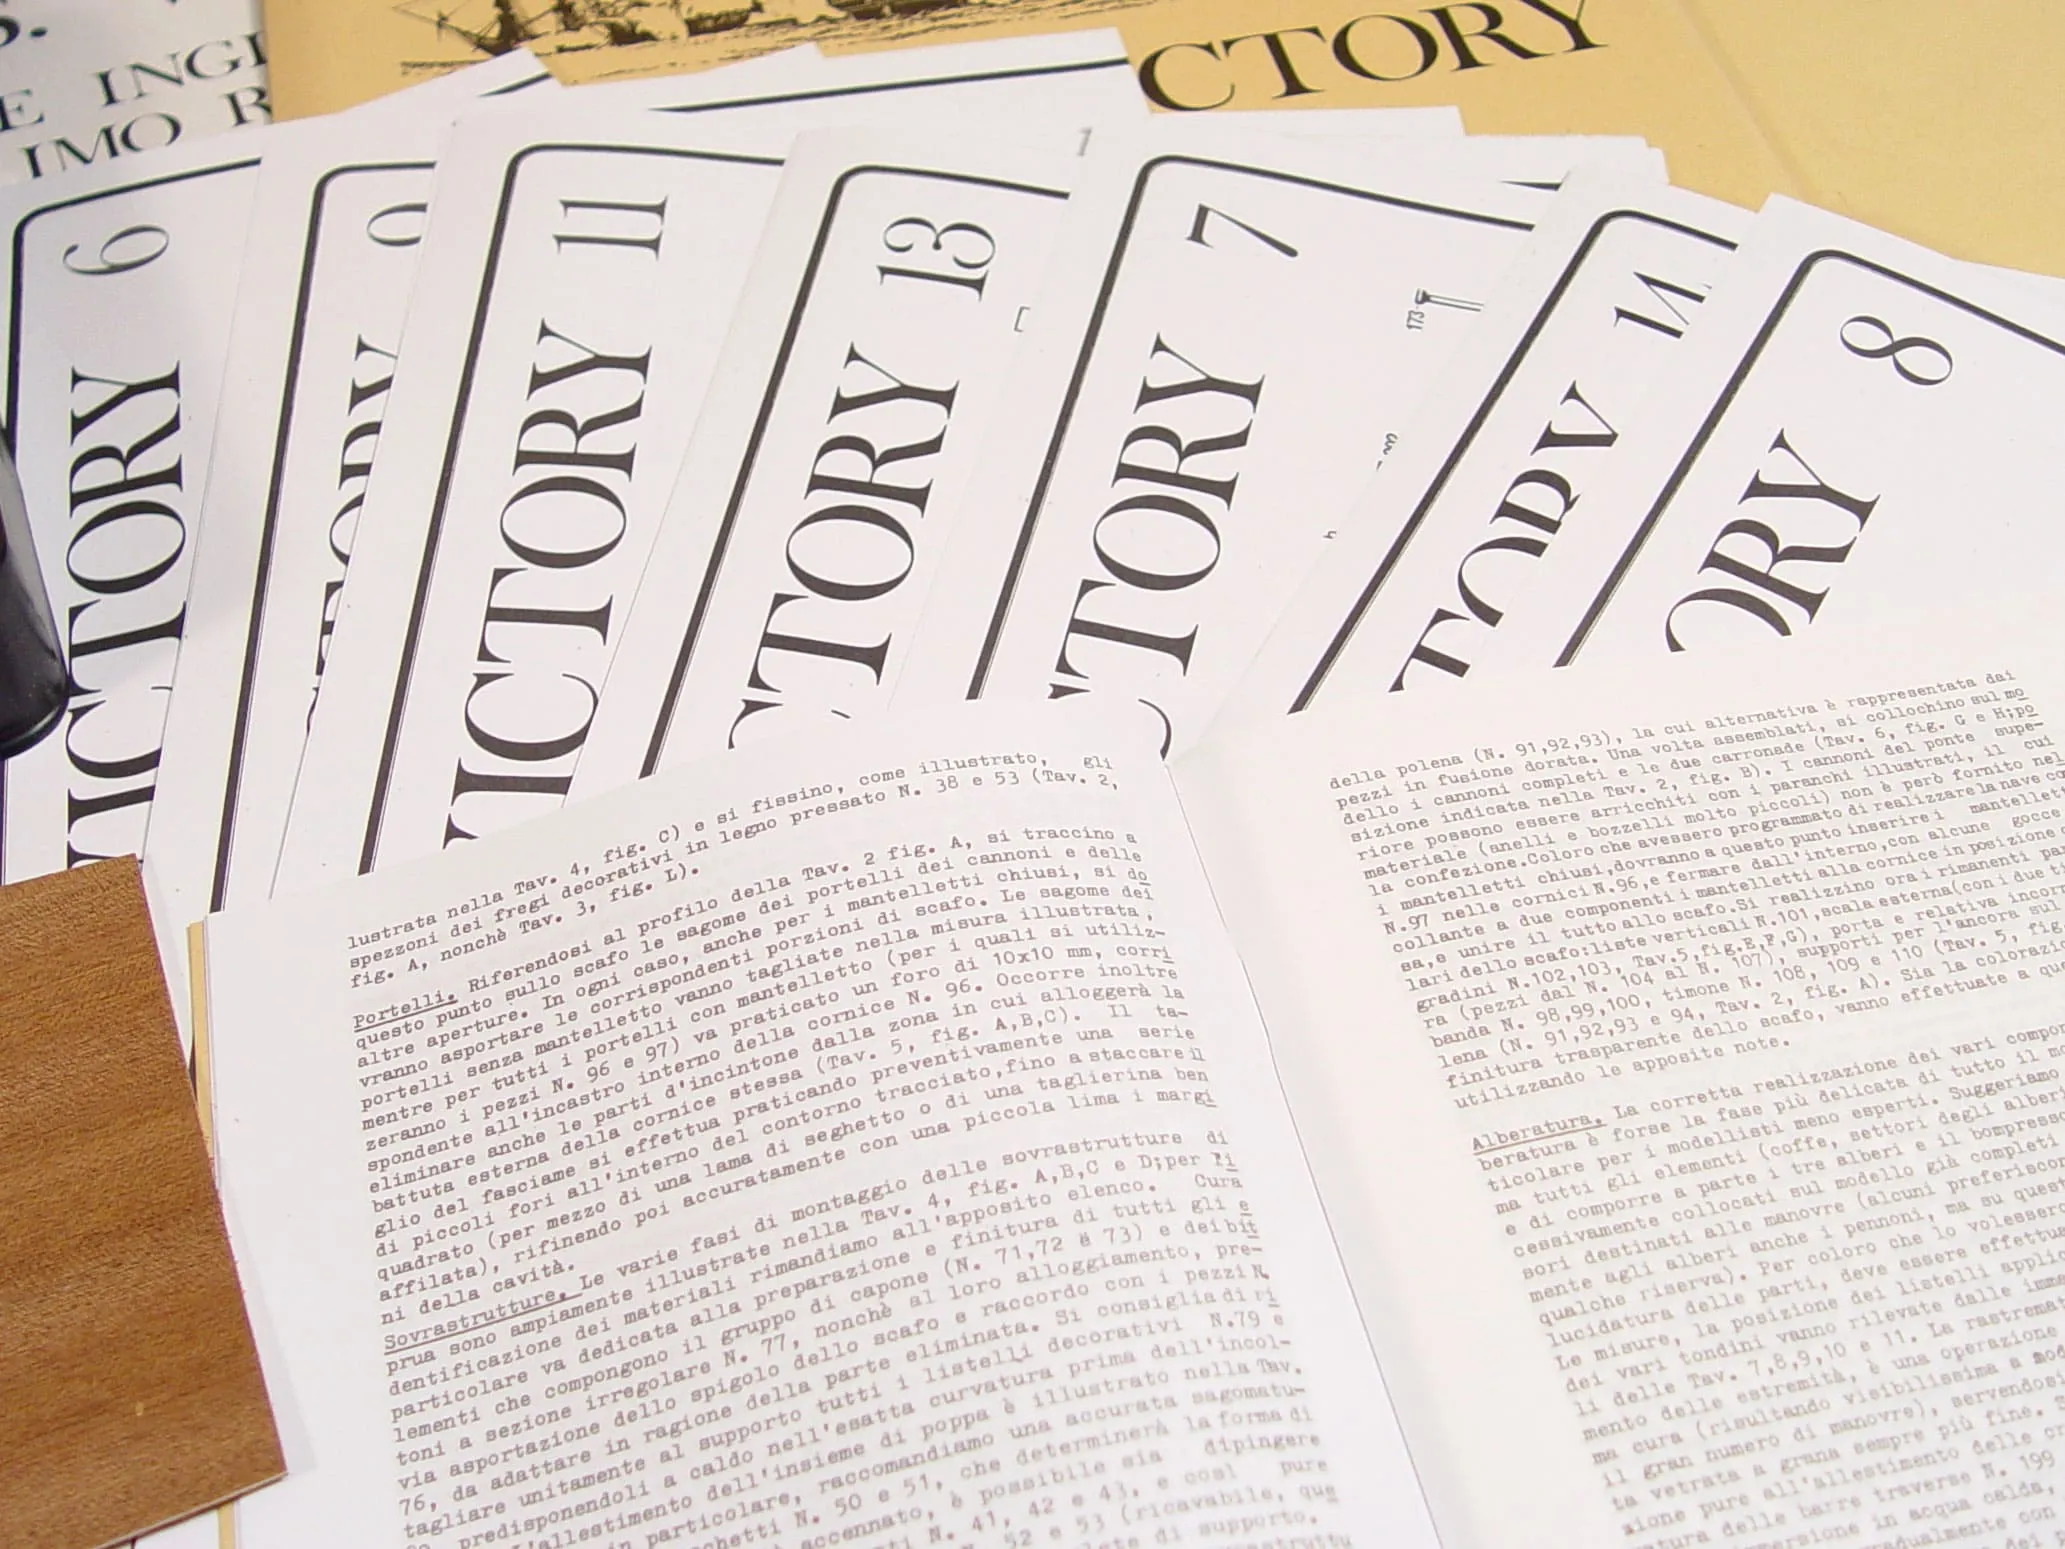 S.
E INGI
IMO R
CTORY
VICTORY 6
TORY 9
VICTORY 11
CTORY 13
CTORY 7
TORY 14
ORY 8
1
173
lustrata nella Tav. 4, fig. C) e si fissino, come illustrato, gli
spezzoni dei fregi decorativi in legno pressato N. 38 e 53 (Tav. 2,
fig. A, nonchè Tav. 3, fig. L).
Portelli. Riferendosi al profilo della Tav. 2 fig. A, si traccino a
questo punto sullo scafo le sagome dei portelli dei cannoni e delle
altre aperture. In ogni caso, anche per i mantelletti chiusi, si do
vranno asportare le corrispondenti porzioni di scafo. Le sagome dei
portelli senza mantelletto vanno tagliate nella misura illustrata,
mentre per tutti i portelli con mantelletto (per i quali si utiliz-
zeranno i pezzi N. 96 e 97) va praticato un foro di 10x10 mm, corri
spondente all'incastro interno della cornice N. 96. Occorre inoltre
eliminare anche le parti d'incintone dalla zona in cui alloggerà la
battuta esterna della cornice stessa (Tav. 5, fig. A,B,C). Il ta-
glio del fasciame si effettua praticando preventivamente una serie
di piccoli fori all'interno del contorno tracciato,fino a staccare il
quadrato (per mezzo di una lama di seghetto o di una taglierina ben
affilata), rifinendo poi accuratamente con una piccola lima i margi
ni della cavità.
Sovrastrutture. Le varie fasi di montaggio delle sovrastrutture di
prua sono ampiamente illustrate nella Tav. 4, fig. A,B,C e D;per l'i
dentificazione dei materiali rimandiamo all'apposito elenco. Cura
particolare va dedicata alla preparazione e finitura di tutti gli e
lementi che compongono il gruppo di capone (N. 71,72 e 73) e dei bit
toni a sezione irregolare N. 77, nonchè al loro alloggiamento, pre-
via asportazione dello spigolo dello scafo e raccordo con i pezzi N.
76, da adattare in ragione della parte eliminata. Si consiglia di ri
tagliare unitamente al supporto tutti i listelli decorativi N.79 e
predisponendoli a caldo nell'esatta curvatura prima dell'incol-
L'allestimento dell'insieme di poppa è illustrato nella Tav.
in particolare, raccomandiamo una accurata sagomatu-
N. 50 e 51, che determinerà la forma di
accennato, è possibile sia dipingere
N. 41, 42 e 43, e così pure
52 e 53 (ricavabile, que
di supporto.
della polena (N. 91,92,93), la cui alternativa è rappresentata dai
pezzi in fusione dorata. Una volta assemblati, si collochino sul mo
dello i cannoni completi e le due carronade (Tav. 6, fig. G e H;po
sizione indicata nella Tav. 2, fig. B). I cannoni del ponte supe-
riore possono essere arricchiti con i paranchi illustrati, il cui
materiale (anelli e bozzelli molto piccoli) non è però fornito nel
la confezione.Coloro che avessero programmato di realizzare la nave co
i mantelletti chiusi,dovranno a questo punto inserire i mantellett
N.97 nelle cornici N.96,e fermare dall'interno,con alcune gocce
collante a due componenti i mantelletti alla cornice in posizione
sa,e unire il tutto allo scafo.Si realizzino ora i rimanenti pa
lari dello scafo:liste verticali N.101,scala esterna(con i due ti
gradini N.102,103, Tav.5,fig.E,F,G), porta e relativa incor
ra (pezzi dal N. 104 al N. 107), supporti per l'ancora sul
banda N. 98,99,100, timone N. 108, 109 e 110 (Tav. 5, fig.
lena (N. 91,92,93 e 94, Tav. 2, fig. A). Sia la colorazi
finitura trasparente dello scafo, vanno effettuate a qu
utilizzando le apposite note.
Alberatura. La corretta realizzazione dei vari compon
beratura è forse la fase più delicata di tutto il mo
ticolare per i modellisti meno esperti. Suggeriamo
ma tutti gli elementi (coffe, settori degli alberi
e di comporre a parte i tre alberi e il bompress
cessivamente collocati sul modello già completi
sori destinati alle manovre (alcuni preferiscon
mente agli alberi anche i pennoni, ma su quest
qualche riserva). Per coloro che lo volesser
lucidatura delle parti, deve essere effettu
Le misure, la posizione dei listelli applic
dei vari tondini vanno rilevate dalle imm
li delle Tav. 7,8,9,10 e 11. La rastrema
mento delle estremità, è una operazione
ma cura (risultando visibilissima a mod
il gran numero di manovre), servendosi
ta vetrata a grana sempre più fine.
zione pure all'allestimento delle cr
tura delle barre traverse N. 199
immersione in acqua calda,
gradualmente con